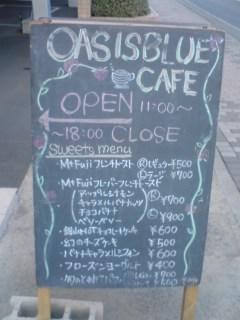 OASISBLUE
CAFE
OPEN 11:00~
~18:00 CLOSE
Sweets menu
・Mt Fujiフレンチトースト Ⓡレギュラー¥500
Ⓛラージ ¥700
・Mt Fujiフレーバーフレンチトースト
アップルシナモン
キャラメルバナナナッツ
チョコバナナ
ベリーベリー
Ⓡ ¥700
Ⓛ ¥900
チョコレートケーキ ¥600
・幻のチーズケーキ ¥500
・バナナキャラメルパフェ ¥600
・フローズンヨーグルト ¥400